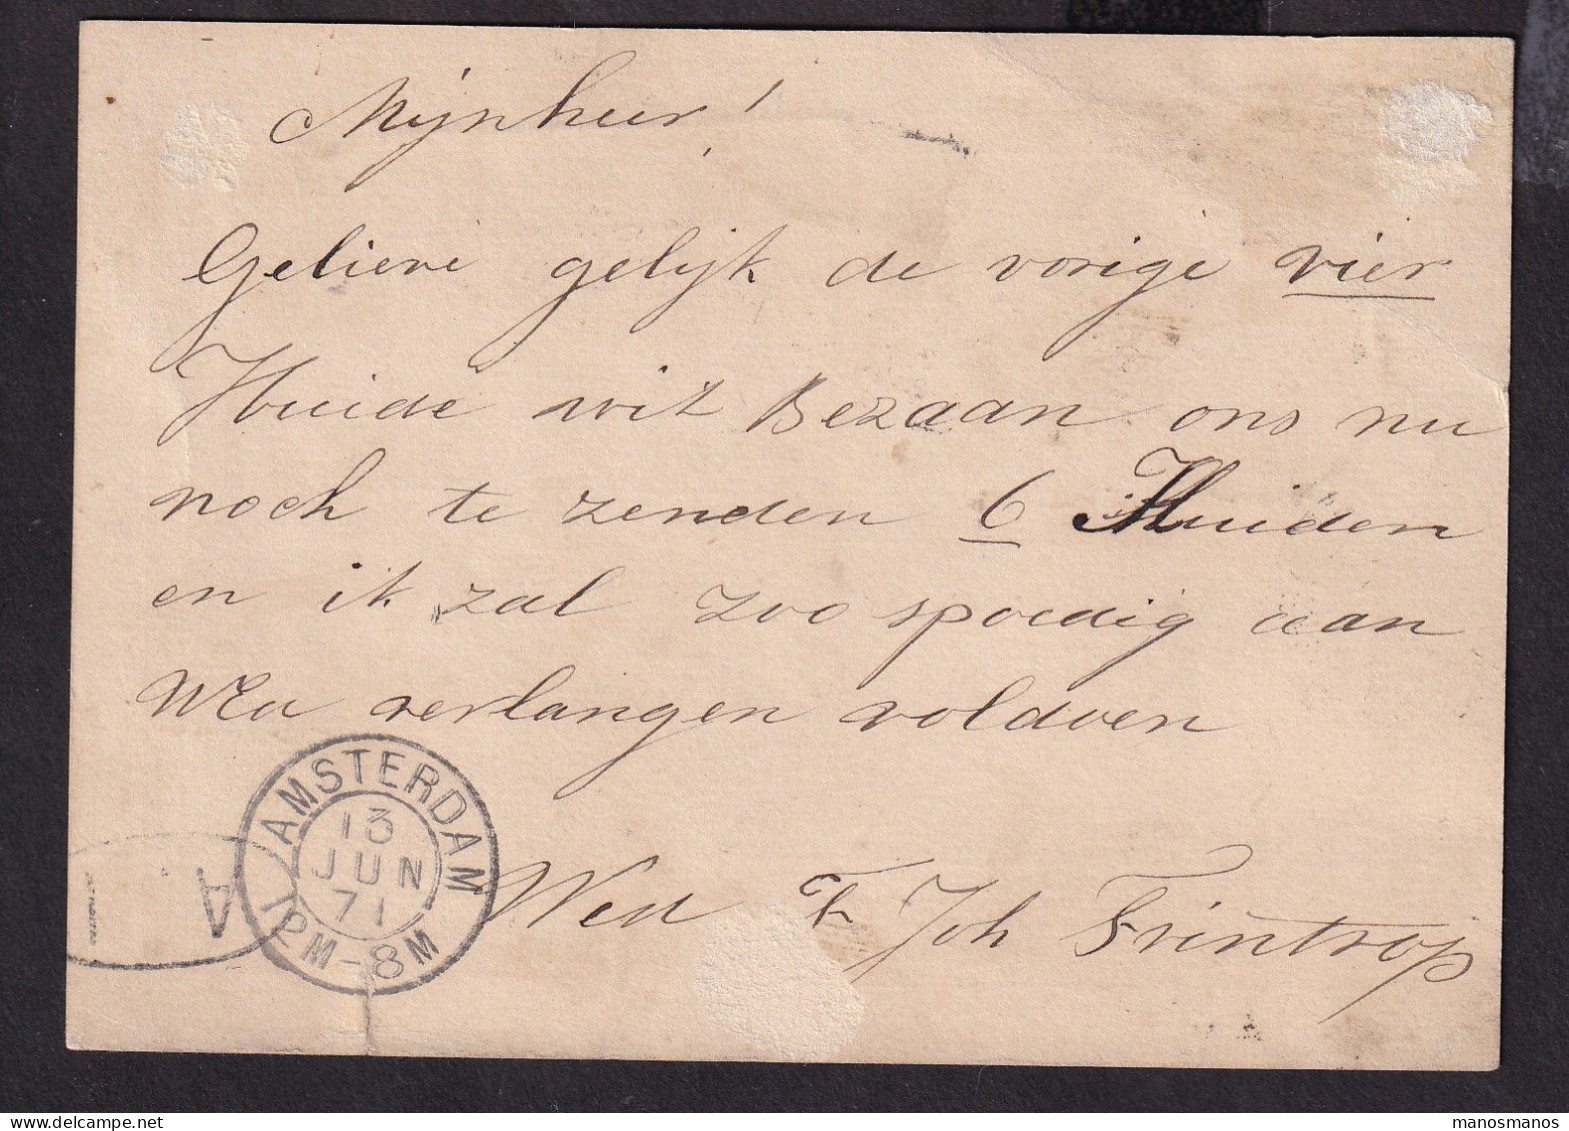 Mijnheer!
Gelieve gelijk de vorige vier
Huide wit Bezaan ons nu
noch te zenden 6 Huiden
en ik zal zoo spoedig aan
WEu verlangen voldoen
Wed Joh Frintrop
AMSTERDAM
13
JUN
71
12M-8M
A
manosmanos